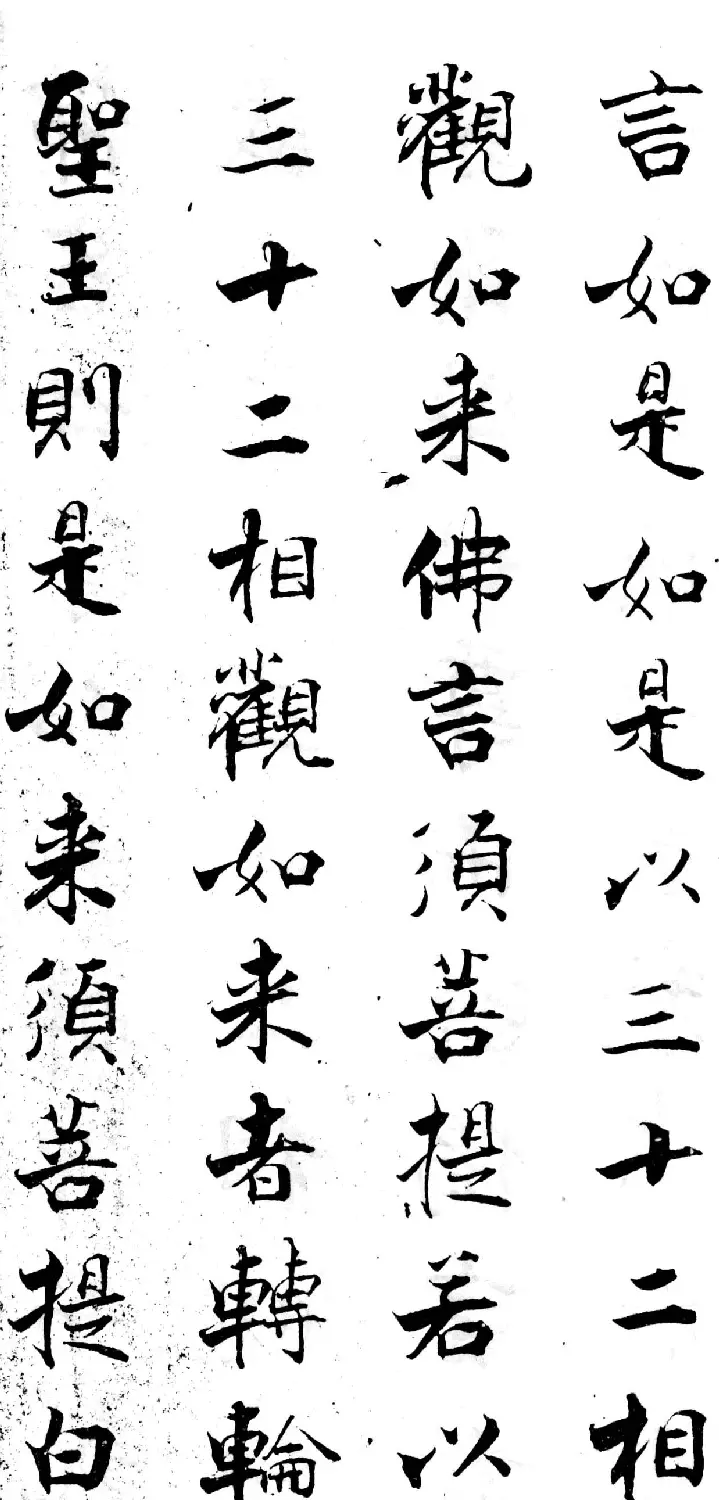 言如是如是以三十二相
觀如来佛言須菩提若以
三十二相觀如来者轉輪
聖王則是如来須菩提白